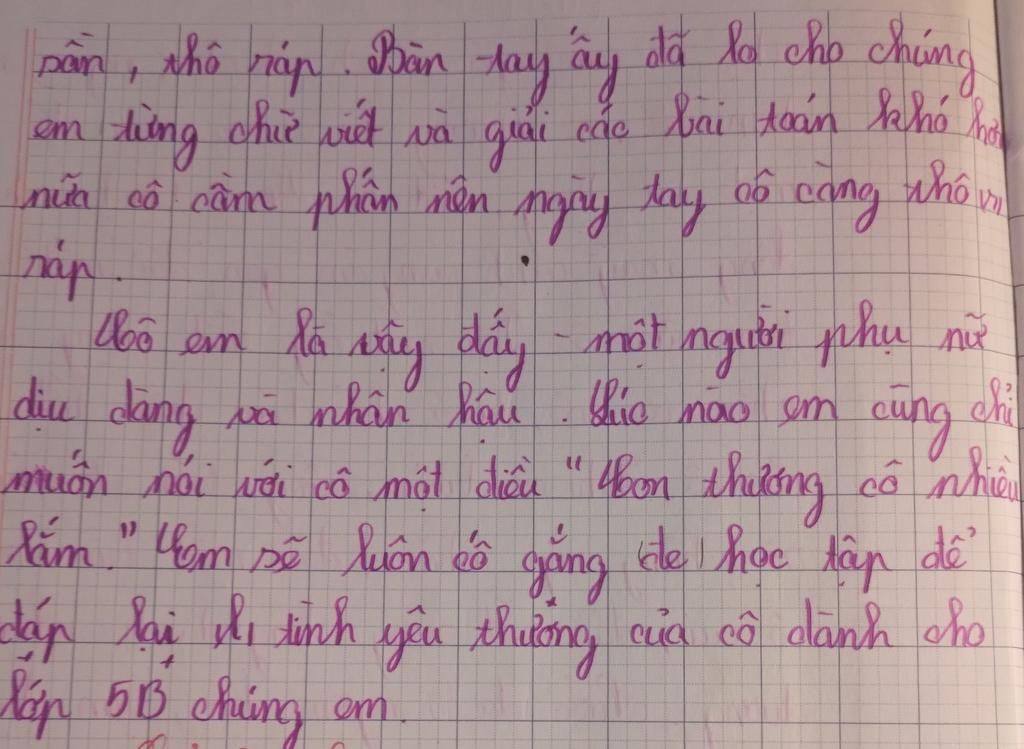 sần, thô ráp. Bàn tay ấy đã lo cho chúng
em từng chữ viết và giải các bài toán khó hơn
nữa cô cầm phấn nên ngày tay cô càng thô
ráp.
Cô em là vậy đấy - một người phụ nữ
dịu dàng và nhân hậu. Lúc nào em cũng chỉ
muốn nói với cô một điều "Con thương cô nhiều
lắm." Em sẽ luôn cố gắng để học tập để
đáp lại tình yêu thương của cô dành cho
lớp 5B chúng em.